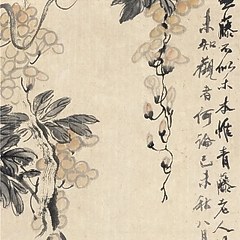 藤不似木本惟青藤老人
未知觀者何論己未秋八月